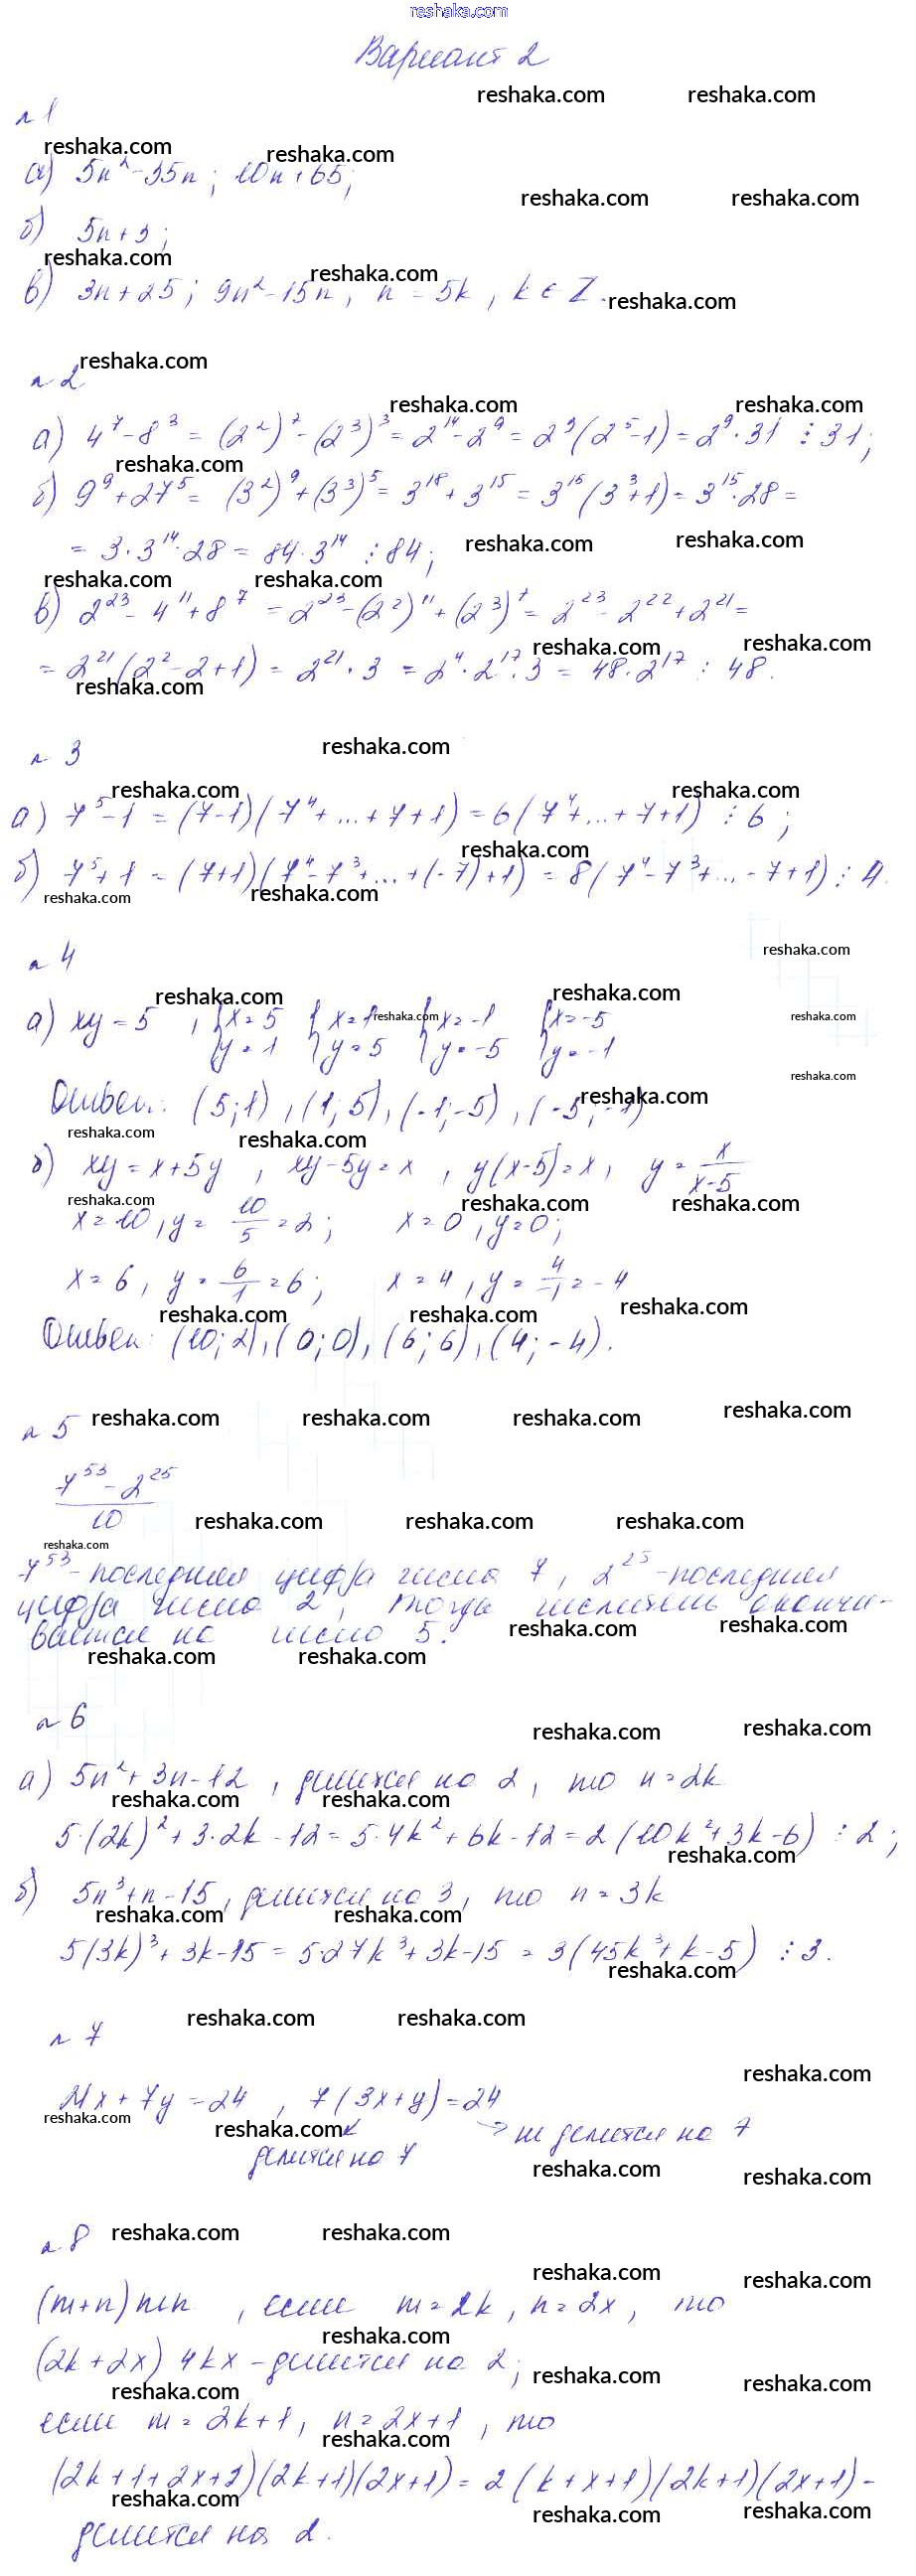 reshaka.com
Вариант 2
reshaka.com reshaka.com
n 1
reshaka.com reshaka.com
а) 5n² - 35n ; 10n + 65 ;
reshaka.com reshaka.com
б) 5n + 3 ;
reshaka.com reshaka.com
в) 3n + 25 ; 9n² - 15n , n = 5k , k ∈ Z.
reshaka.com
reshaka.com
n 2
reshaka.com reshaka.com
а) 4⁷ - 8³ = (2²)⁷ - (2³)³ = 2¹⁴ - 2⁹ = 2⁹ (2⁵ - 1) = 2⁹ · 31 ⋮ 31 ;
reshaka.com
б) 9⁹ + 27⁵ = (3²)⁹ + (3³)⁵ = 3¹⁸ + 3¹⁵ = 3¹⁵ (3³ + 1) = 3¹⁵ · 28 =
= 3 · 3¹⁴ · 28 = 84 · 3¹⁴ ⋮ 84 ; reshaka.com reshaka.com
reshaka.com reshaka.com
в) 2²³ - 4¹¹ + 8⁷ = 2²³ - (2²)¹¹ + (2³)⁷ = 2²³ - 2²² + 2²¹ =
reshaka.com reshaka.com
= 2²¹ (2² - 2 + 1) = 2²¹ · 3 = 2⁴ · 2¹⁷ · 3 = 48 · 2¹⁷ ⋮ 48.
reshaka.com
n 3 reshaka.com
reshaka.com reshaka.com
а) 7⁵ - 1 = (7 - 1) (7⁴ + ... + 7 + 1) = 6 (7⁴ + ... + 7 + 1) ⋮ 6 ;
reshaka.com
б) 7⁵ + 1 = (7 + 1) (7⁴ - 7³ + ... + (-7) + 1) = 8 (7⁴ - 7³ + ... - 7 + 1) ⋮ 4.
reshaka.com reshaka.com
n 4 reshaka.com
reshaka.com reshaka.com
а) xy = 5 , { x = 5 { x = 1 { x = -1 { x = -5
reshaka.com reshaka.com
y = 1 y = 5 y = -5 y = -1
reshaka.com
Ответ: (5 ; 1) , (1 ; 5) , (-1 ; -5) , (-5 ; -1)
reshaka.com
reshaka.com reshaka.com
б) xy = x + 5y , xy - 5y = x , y (x - 5) = x , y = x/(x - 5)
reshaka.com reshaka.com reshaka.com
x = 10 , y = 10/5 = 2 ; x = 0 , y = 0 ;
x = 6 , y = 6/1 = 6 ; x = 4 , y = 4/-1 = -4
reshaka.com reshaka.com reshaka.com
Ответ: (10 ; 2) , (0 ; 0) , (6 ; 6) , (4 ; -4).
n 5 reshaka.com reshaka.com reshaka.com reshaka.com
7⁵³ - 2²⁵
10
reshaka.com reshaka.com reshaka.com
reshaka.com
7⁵³ - последняя цифра числа 7 , 2²⁵ - последняя
цифра числа 2 , тогда числитель оканчи-
reshaka.com reshaka.com
вается на число 5.
reshaka.com reshaka.com
n 6
reshaka.com reshaka.com
а) 5n² + 3n - 12 , делится на 2 , то n = 2k
reshaka.com reshaka.com
5 · (2k)² + 3 · 2k - 12 = 5 · 4k² + 6k - 12 = 2 (10k² + 3k - 6) ⋮ 2 ;
reshaka.com
б) 5n³ + n - 15 , делится на 3 , то n = 3k
reshaka.com reshaka.com
5 (3k)³ + 3k - 15 = 5 · 27k³ + 3k - 15 = 3 (45k³ + k - 5) ⋮ 3.
reshaka.com
reshaka.com reshaka.com
n 7
reshaka.com
21x + 7y = 24 , 7 (3x + y) = 24
reshaka.com reshaka.com
не делится на 7
делится на 7
reshaka.com reshaka.com
n 8 reshaka.com reshaka.com
reshaka.com reshaka.com
(m + n) mn , если m = 2k , n = 2x , то
reshaka.com
(2k + 2x) 4kx - делится на 2 ;
reshaka.com reshaka.com
reshaka.com
если m = 2k + 1 , n = 2x + 1 , то
reshaka.com
(2k + 1 + 2x + 1) (2k + 1) (2x + 1) = 2 (k + x + 1) (2k + 1) (2x + 1) -
reshaka.com reshaka.com reshaka.com
делится на 2.